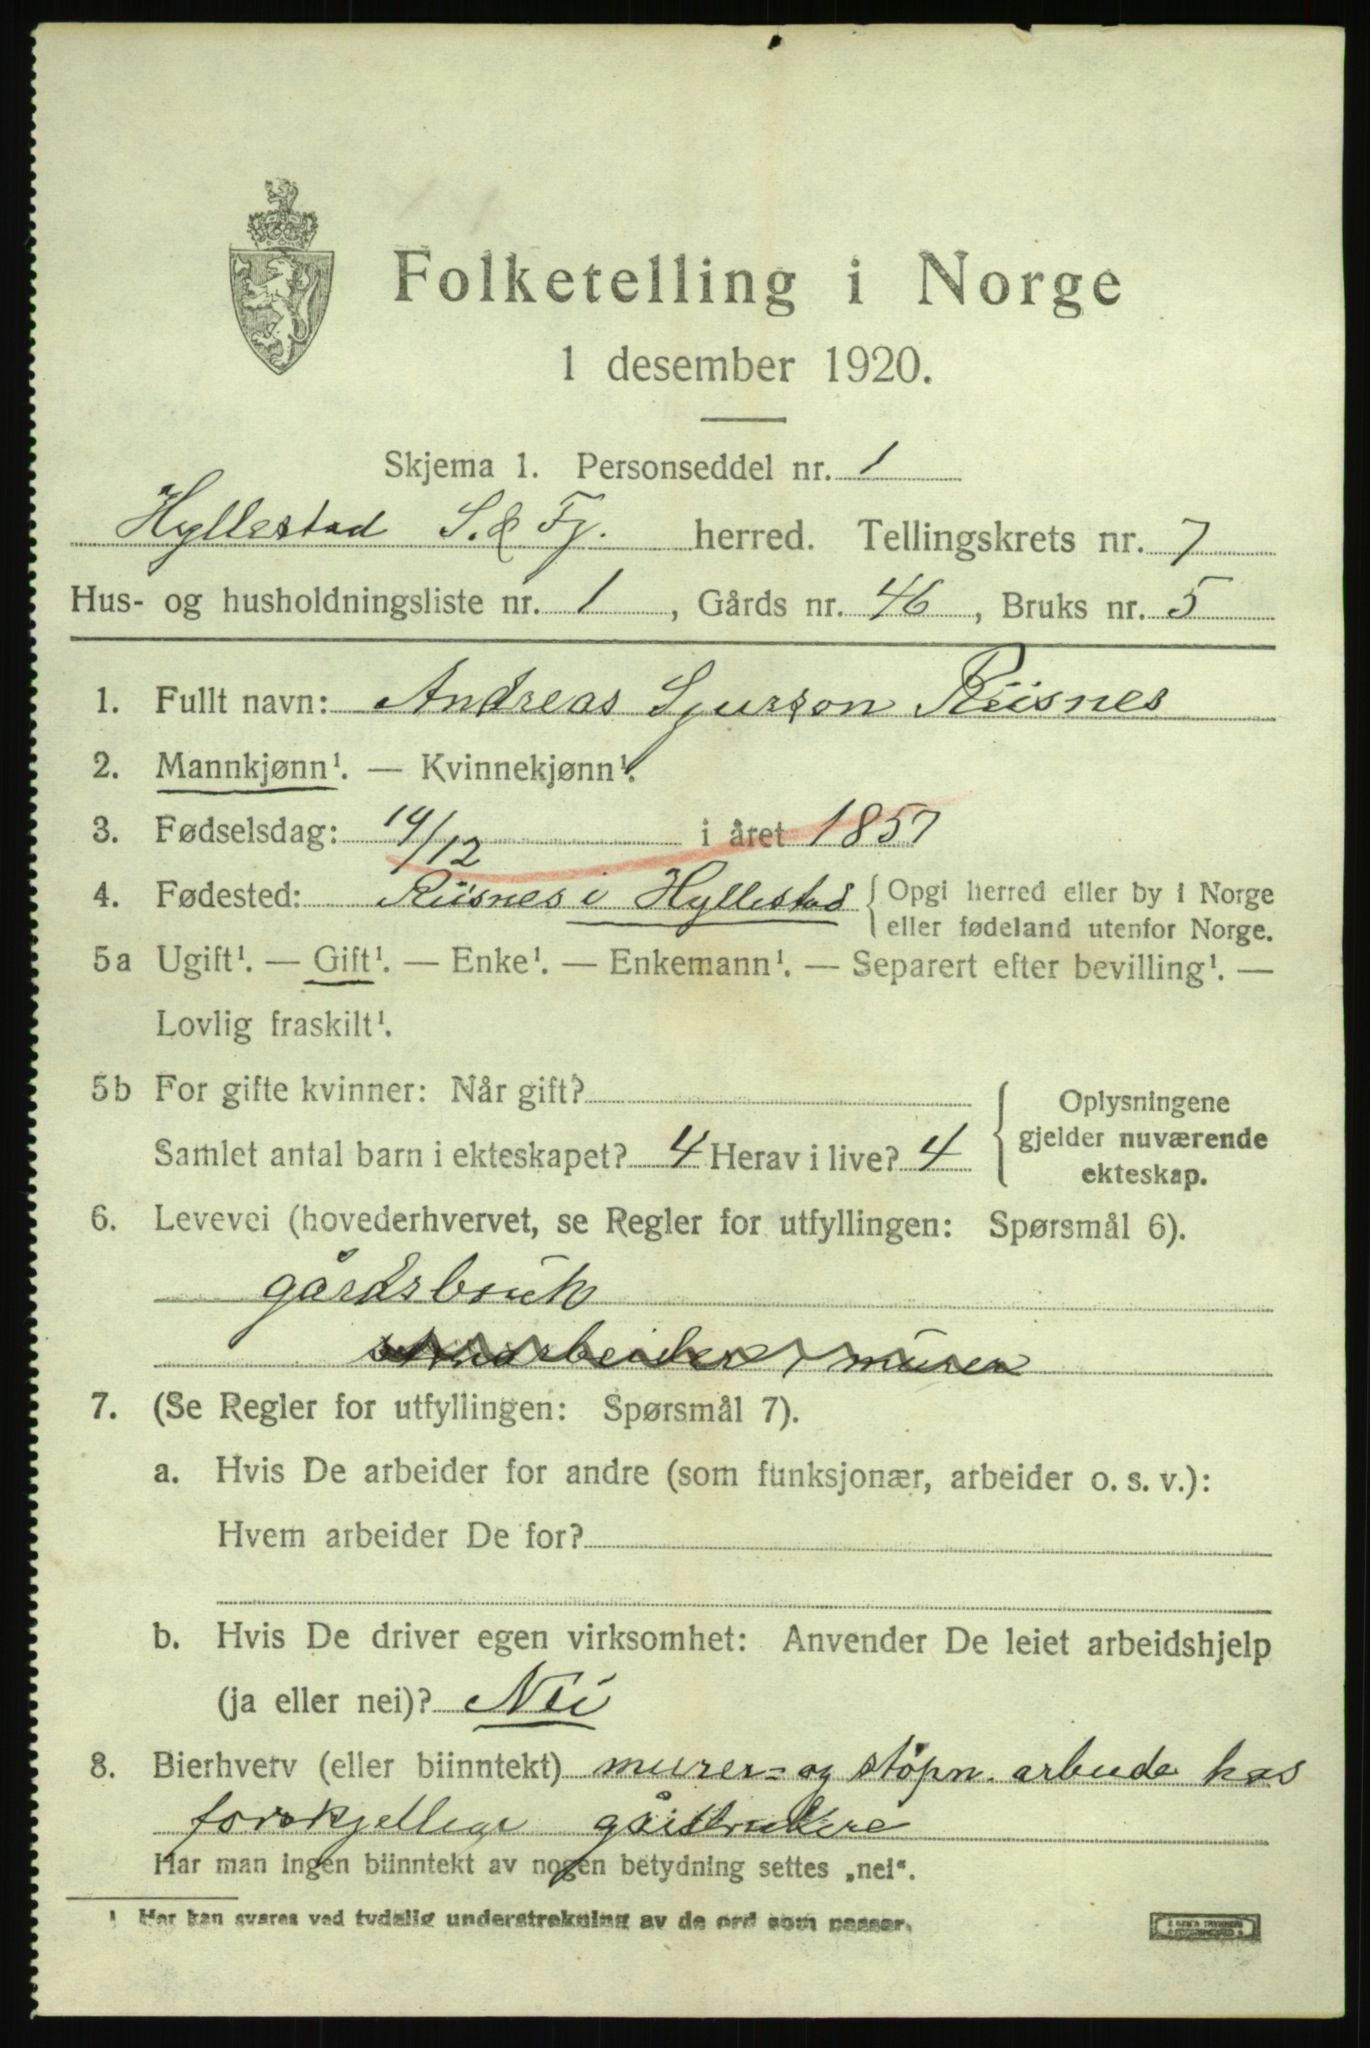 Folketelling i Norge
1 desember 1920.
Skjema 1. Personseddel nr. 1
Hyllestad S. & Fj. herred. Tellingskrets nr. 7
Hus- og husholdningsliste nr. 1, Gårds nr. 46, Bruks nr. 5
1. Fullt navn: Andreas Sjurson Risnes
2. Mannkjønn¹. — Kvinnekjønn¹.
3. Fødselsdag: 14/12 i året 1857
4. Fødested: Risnes i Hyllestad { Opgi herred eller by i Norge
eller fødeland utenfor Norge.
5a Ugift¹. — Gift¹. — Enke¹. — Enkemann¹. — Separert efter bevilling¹. —
Lovlig fraskilt¹.
5b For gifte kvinner: Når gift?
Samlet antal barn i ekteskapet? 4 Herav i live? 4
Oplysningene
gjelder nuværende
ekteskap.
6. Levevei (hovederhvervet, se Regler for utfyllingen: Spørsmål 6).
gårdsbruk
murer
7. (Se Regler for utfyllingen: Spørsmål 7).
a. Hvis De arbeider for andre (som funksjonær, arbeider o. s. v.):
Hvem arbeider De for?
b. Hvis De driver egen virksomhet: Anvender De leiet arbeidshjelp
(ja eller nei)? Nei
8. Bierhverv (eller biinntekt) murer- og støpn. arbeide hos
forskjellige gårdbrukere
Har man ingen biinntekt av nogen betydning settes „nei“.
¹ Her kan svares ved tydelig understrekning av de ord som passer.